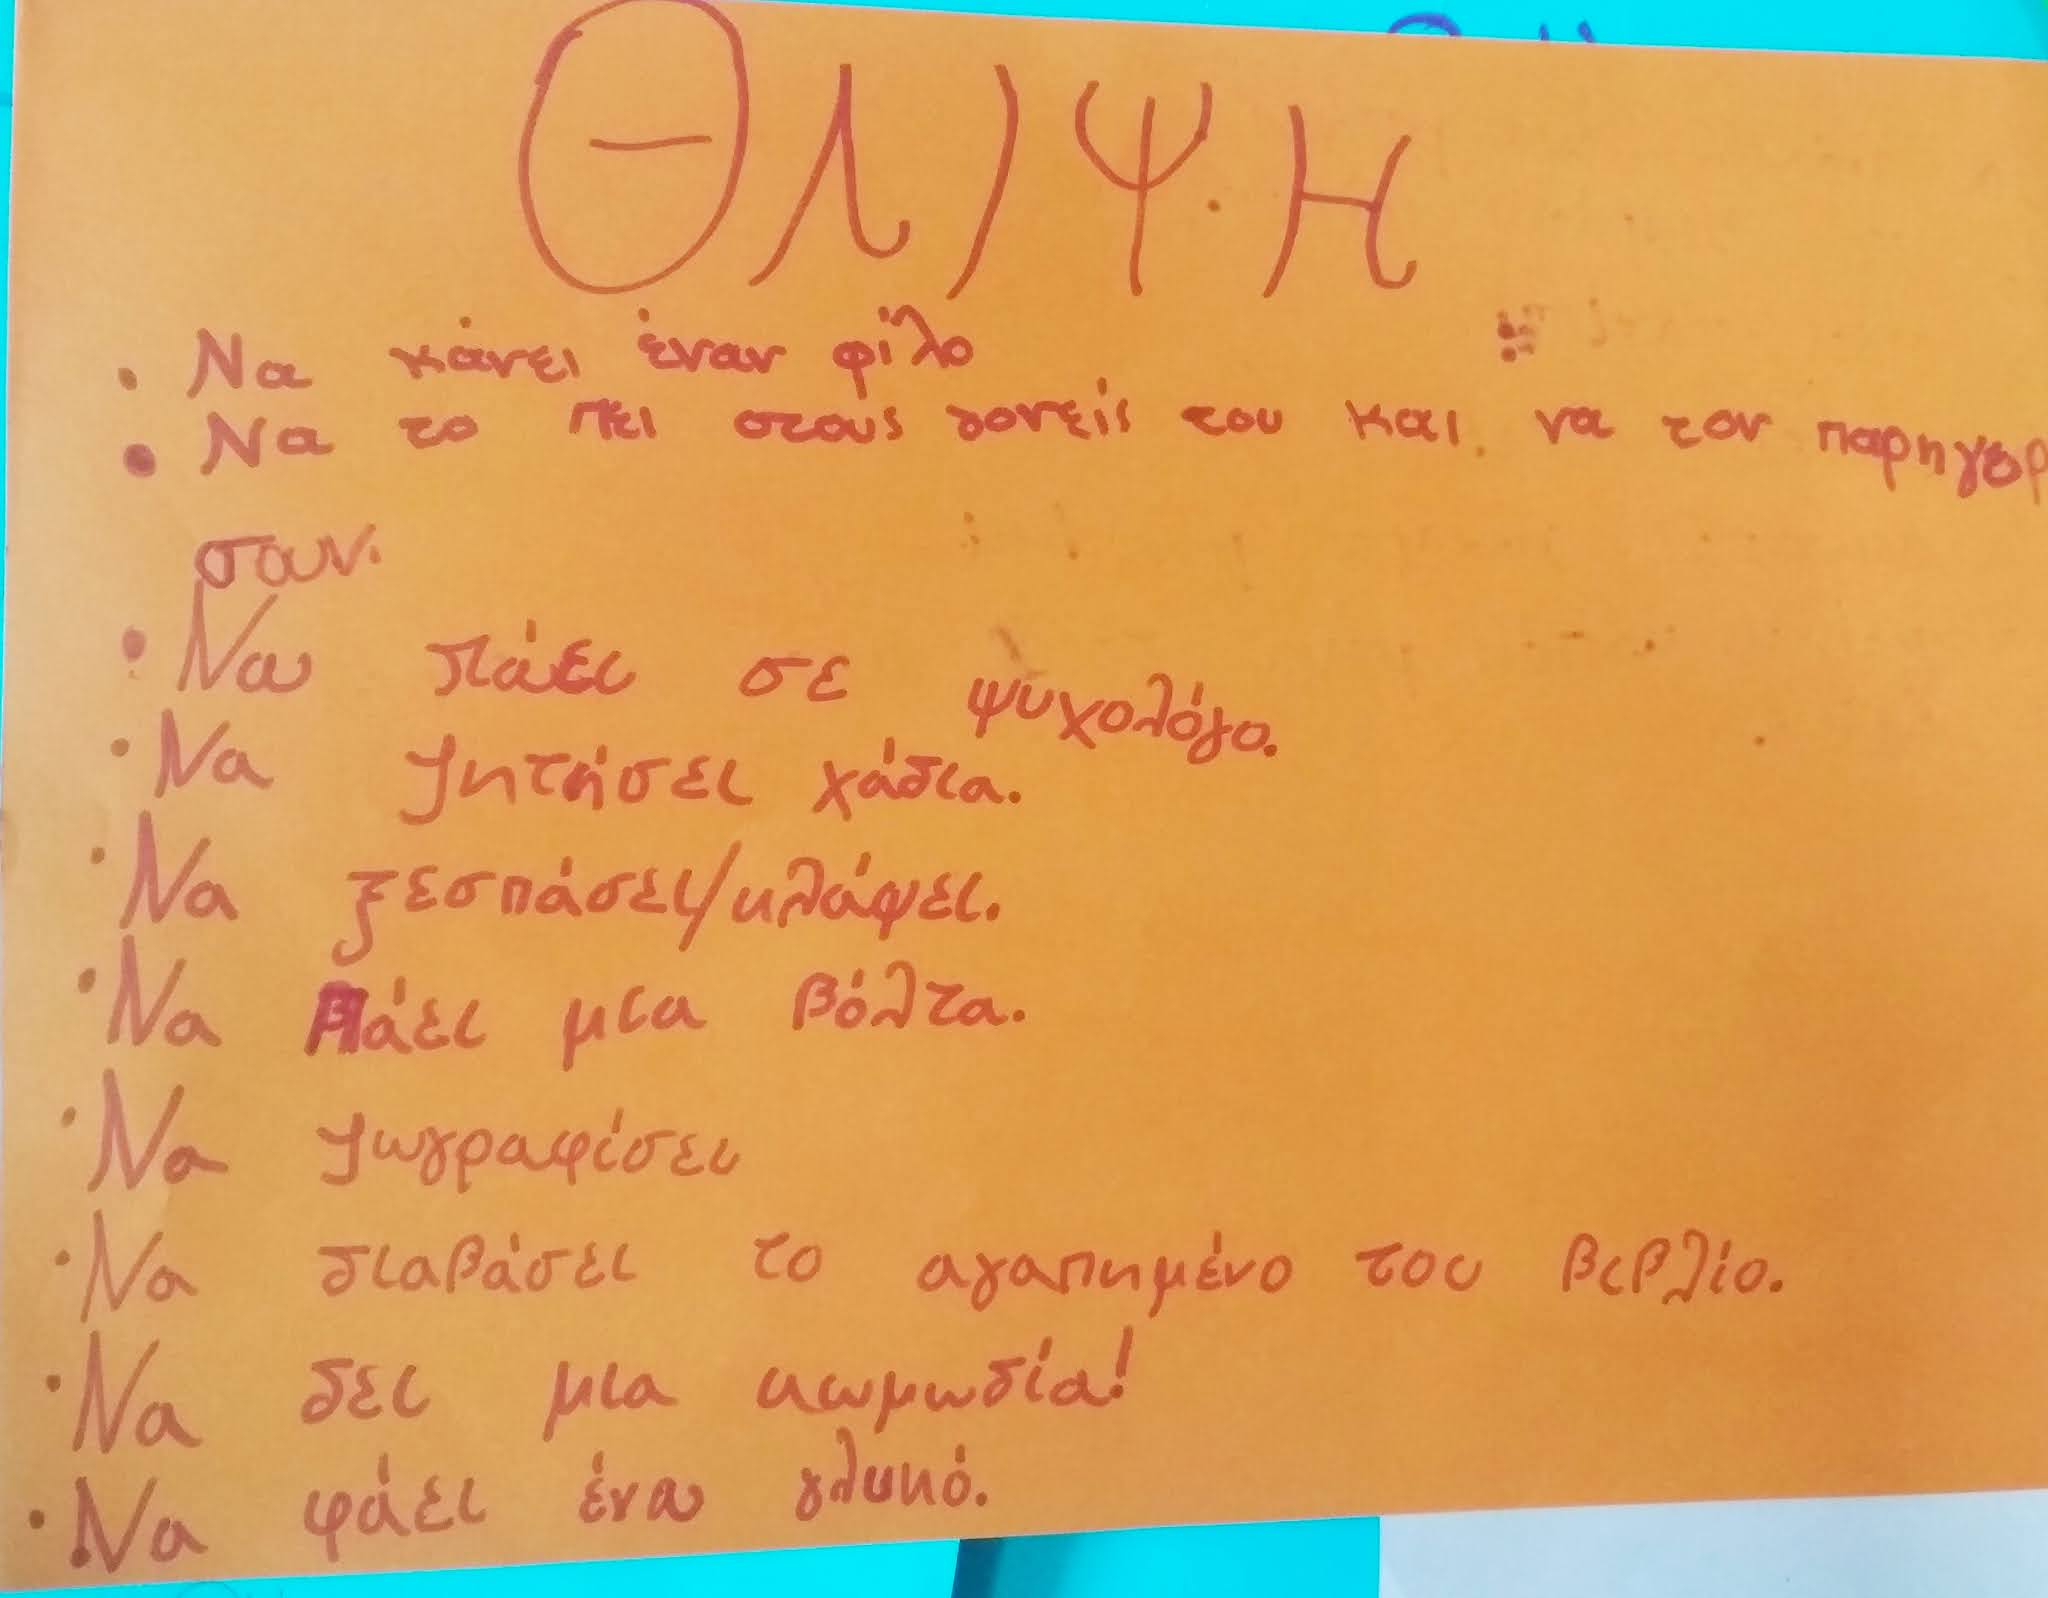 ΘΛΙΨΗ
• Να κάνει έναν φίλο
• Να το πει στους γονείς του και να τον παρηγορ
σουν.
• Να πάει σε ψυχολόγο.
• Να ζητήσει χάδια.
• Να ξεσπάσει/κλάψει.
• Να πάει μια βόλτα.
• Να ζωγραφίσει
• Να διαβάσει το αγαπημένο του βιβλίο.
• Να δει μια κωμωδία!
• Να φάει ένα γλυκό.